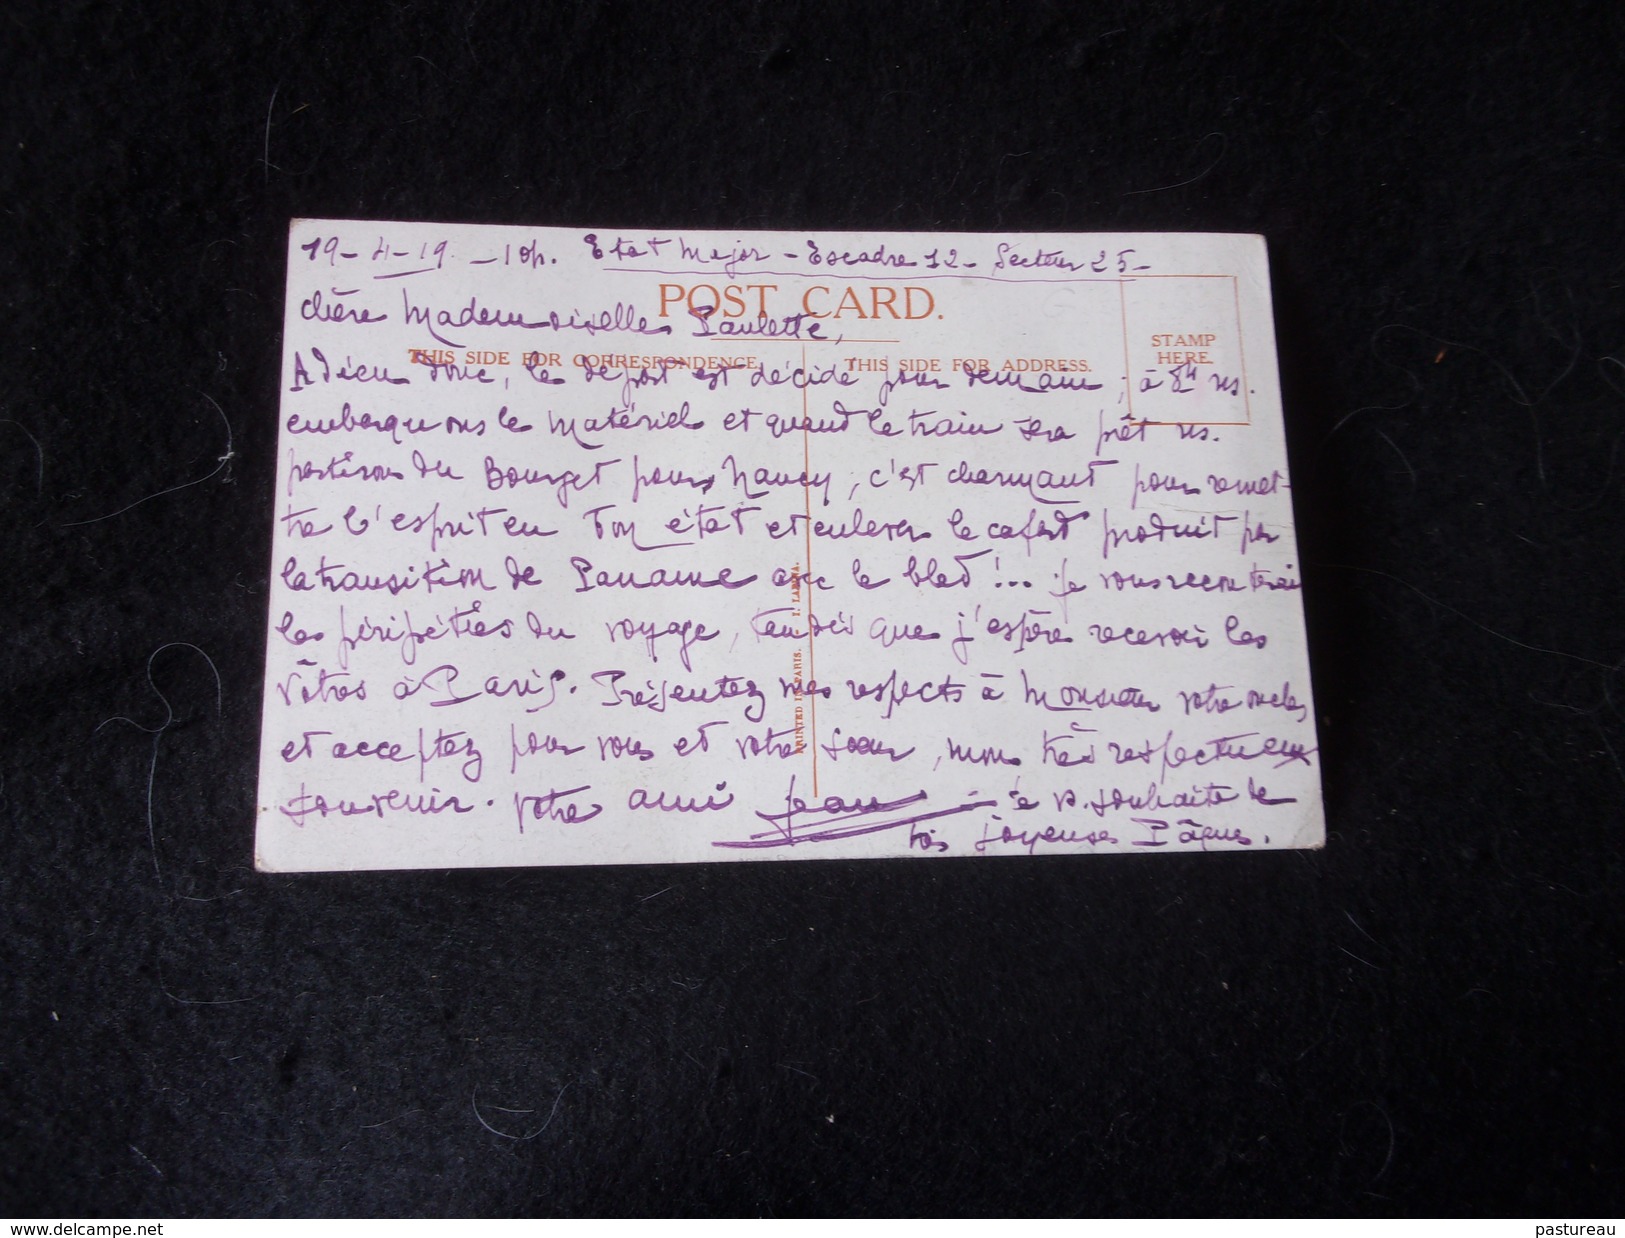 19-4-19 - 10h. Etat Major - Escadre 12 - Secteur 25 -
POST CARD.
Chère Mademoiselle Paulette,
STAMP
HERE.
THIS SIDE FOR CORRESPONDENCE.
THIS SIDE FOR ADDRESS.
Adieu donc, le départ est décidé pour demain ; à 8h ns.
embarquons le matériel et quand le train sera prêt ns.
partirons du Bourget pour Nancy, c'est charmant pour remet-
tre l'esprit en bon état et enlever le cafard produit par
la transition de Paname avec le bled !... je vous raconterai
les péripéties du voyage, tandis que j'espère recevoir les
vôtres à Paris. Présentez mes respects à Monsieur votre oncle,
et acceptez pour vous et votre soeur, mon très respectueux
souvenir. votre ami Jean - je v. souhaite de
très joyeuses Pâques.
PRINTED IN PARIS. I. LAPINA.
www.delcampe.net
pastureau